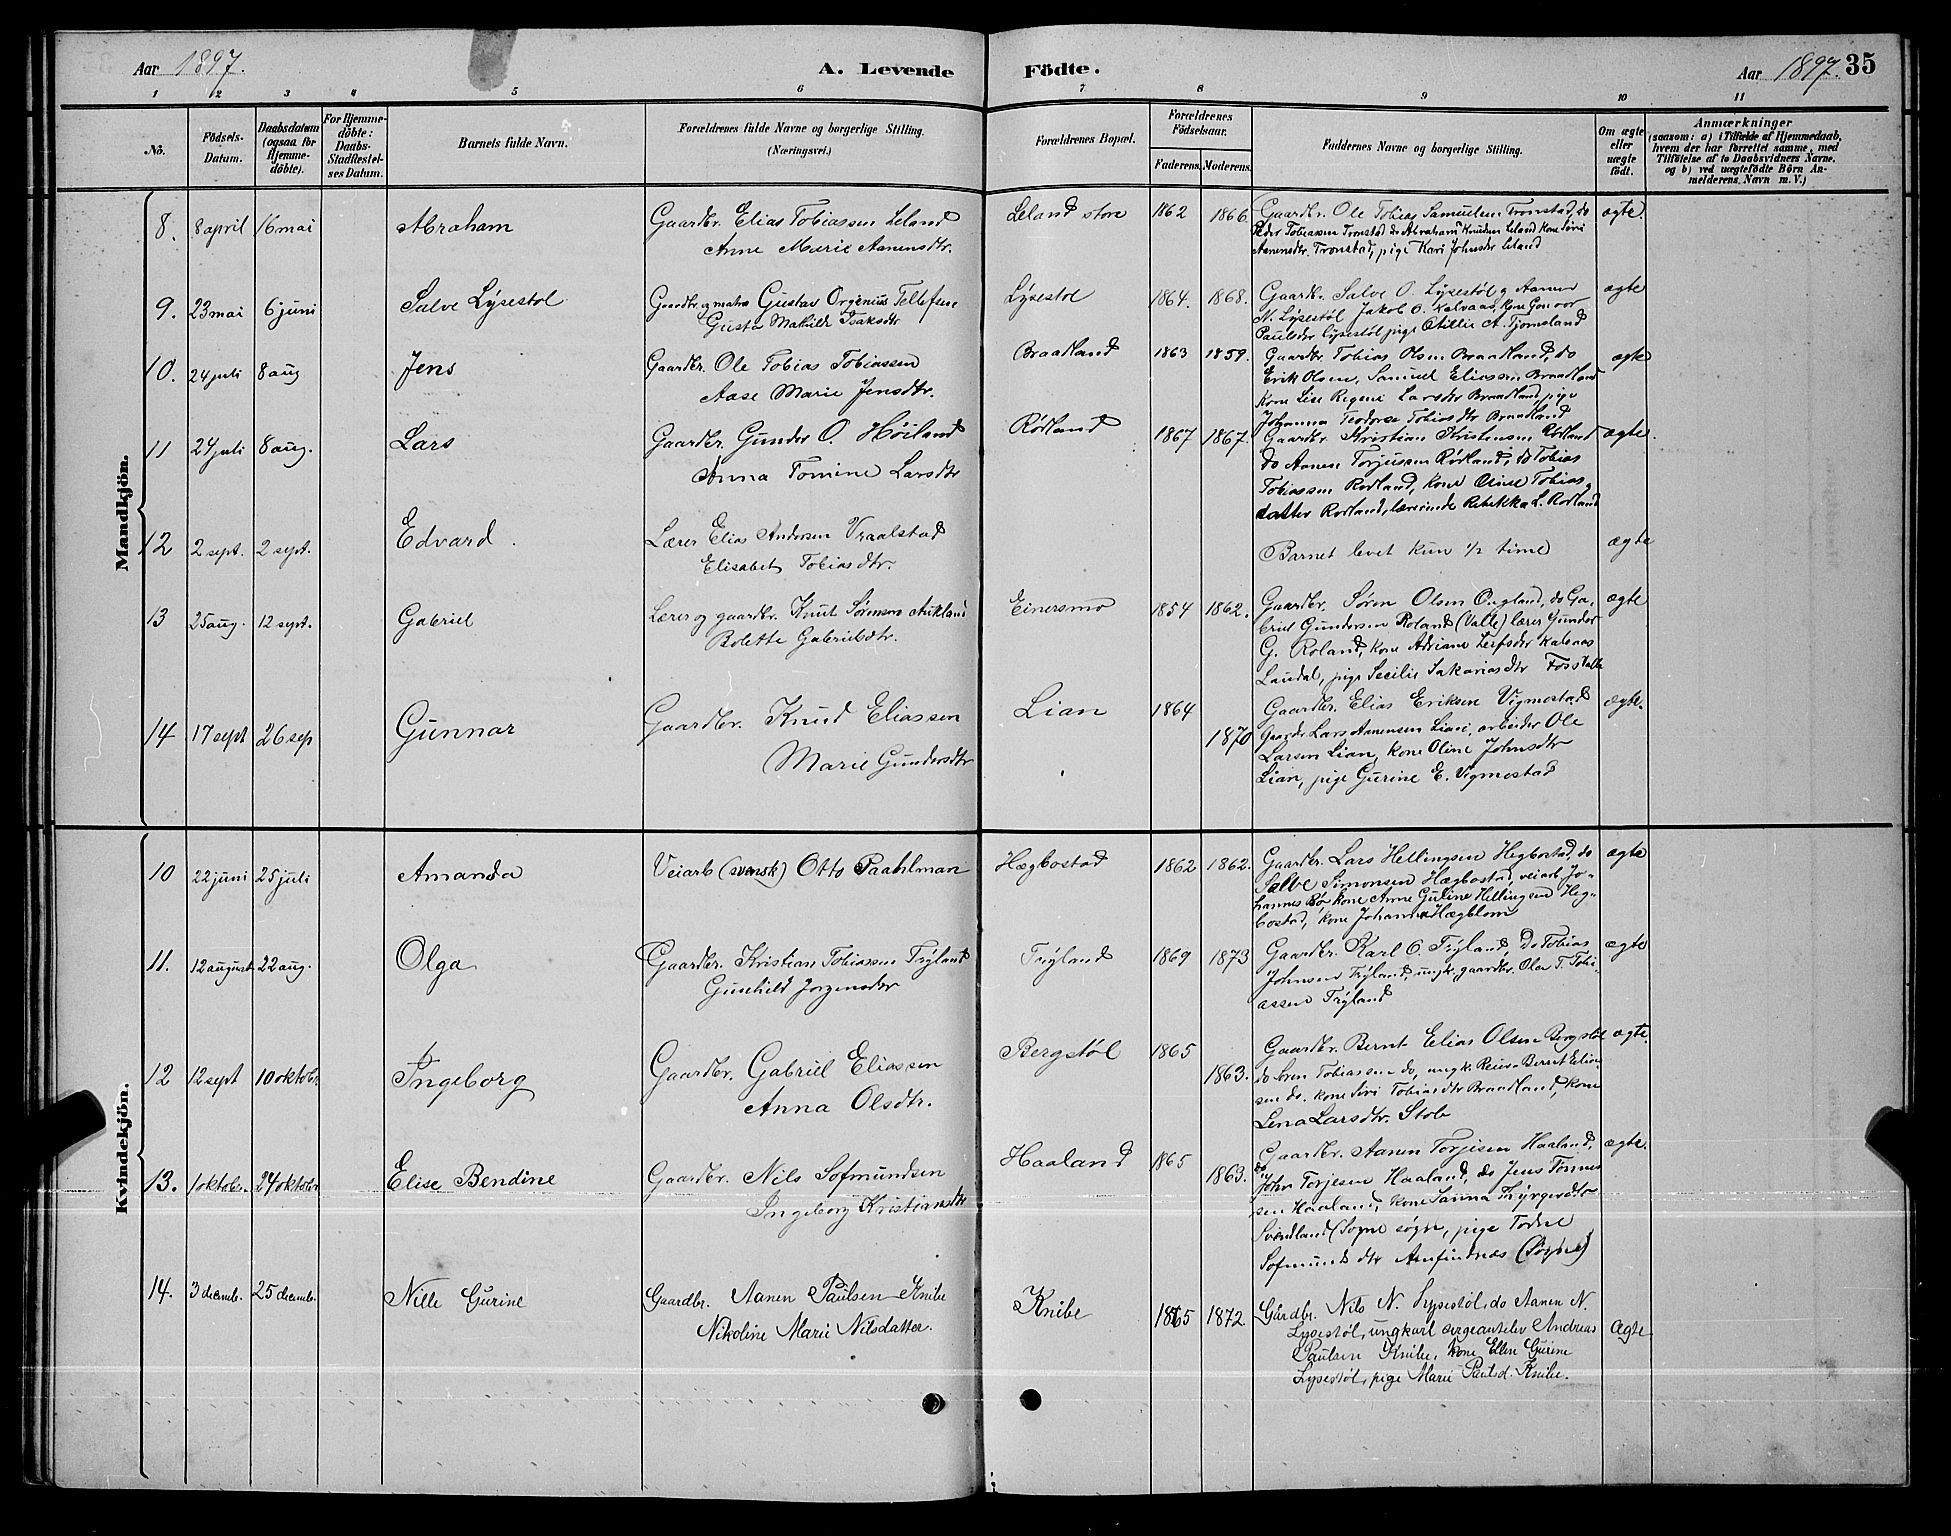 Aar 1897.
A. Levende Födte.
Aar 1897. 35
1 2 3 4 5 6 7 8 9 10 11
No.
Födsels-Datum.
Daabsdatum (ogsaa for Hjemmedöbte).
For Hjemmedöbte: Daabs-Stadfæstelses Datum.
Barnets fulde Navn.
Forældrenes fulde Navne og borgerlige Stilling. (Næringsvei.)
Forældrenes Bopæl.
Forældrenes Födselsaar.
Faderens. Moderens.
Faddernes Navne og borgerlige Stilling.
Om ægte eller uægte födt.
Anmærkninger
(saasom: a) i Tilfælde af Hjemmedaab, hvem der har forrettet samme, med Tilföielse af to Daabsvidners Navne, og b) ved uægtefödte Börn Anmelderens Navn m. V.)
Mandkjön.
8. 8 april 16 mai Abraham
Gaardbr. Elias Tobiassen Leland
Anne Marie Aanensdtr.
Leland store 1862 1866
Gaardbr. Ole Tobias Samuelsen Tronstad, do
Peder Tobiassen Tronstad do Abraham Knudsen Leland kone Siri
Aanensdtr. Tronstad, pige Kari Johnsdr Leland
ægte.
9. 23 mai 6 juni Salve Lysestøl
Gaardbr. og matros Gustav Orgenius Tellefsen
Gusta Mathilde Isaksdtr
Lysestøl 1864. 1868.
Gaardbr. Salve O. Lysestøl og Aanen
N. Lysestøl Jakob O. Kalvaas, kone Gonvor
Paulsdr Lysestøl pige Otillie A. Tjomsland
ægte
10. 24 juli 8 aug Jens
Gaardbr. Ole Tobias Tobiassen
Aase Marie Jensdtr.
Braadland 1863 1859.
Gaardbr. Tobias Olsen Braadland, do
Erik Olsen, Samuel Eliassen Braadland
kone Lise Regine Larsdtr Braadland, pige
Johanna Teodorse Tobiasdtr Braadland
ægte
11 24 juli 8 aug. Lars
Gaardbr. Gunder O. Høiland
Anna Tomine Larsdtr
Rødland 1867 1867.
Gaardbr. Kristian Kristensen Rødland
do Aanen Torjussen Rødland, do Tobias
Tobiassen Rødland, kone Olise Tobias
datter Rødland, lærerinde Rebekka L. Rødland
ægte.
12 2 sept. 2 sept. Edvard.
Lærer Elias Andersen Vraalstad
Elisabet Tobiasdtr.
Barnet levet kun 1/2 time
ægte
13 25 aug. 12 sept. Gabriel
Lærer og gaardbr. Knut Sørensen Aukland
Bolette Gabrielsdtr.
Einersmo 1854 1862.
Gaardbr. Søren Olsen Øugland, do Ga-
briel Gundersen Roland (Valle) lærer Gunder
G. Roland, kone Adriane Leifsdtr
Laudal, pige Secilie Sakariasdtr
ægte
14 17 sept 26 sep Gunnar
Gaardbr. Knud Eliassen
Marie Gundersdtr
Lian 1864 1870
Gaardbr. Elias Eriksen Vigmostad
Gaardbr Lars Aanensen Lian, arbeider Ole
Larsen Lian, kone Oline Johnsdtr
Lian, pige Gurine E. Vigmostad
ægte.
Kvindekjön.
10 22 juni 25 juli Amanda
Veiarb (svensk) Otto Paahlman
Hægbostad 1862 1862.
Gaardbr. Lars Hellingsen Hegbostad, do
Salve Simonsen Hægbostad, veiarb. Jo-
hannes Bø kone Anne Guline Hellingsen Heg-
bostad, kone Johanna Hægblom
ægte
11. 12 august 22 aug. Olga
Gaardbr. Kristian Tobiassen Trÿland
Gunhild Jorgensdtr
Trÿland 1869 1873
Gaardbr. Karl O. Trÿland, do Tobias
Johnsen Trÿland, ungk. gaardbr. Olav T. Tobi-
assen Trÿland
ægte
12 12 sept 10 oktobr. Ingeborg
Gaardbr. Gabriel Eliassen
Anna Olsdtr.
Bergstøl 1865 1863.
Gaardbr. Bernt Elias Olsen Bergstøl
do Søren Tobiassen do, ungk. Reier Bernt Elias-
sen do. kone Siri Tobiasdtr Braadland, kone
Lena Larsdtr. Stob
ægte.
13. 1 oktobr. 24 oktobr Elise Bendine
Gaardbr. Nils Sofmundsen
Ingeborg Kristiansdtr
Haaland 1865 1863.
Gaardbr. Aanen Torjesen Haaland,
do John Torjesen Haaland, do Jens Tønnes
sen Haaland, kone Sanna Thÿrgersdtr
Svindland (Søgne sogn, pige Todne
Sofmundsdtr Amfindnæs (Søgne)
ægte.
14. 3 decemb. 25 decemb. Nille Gurine
Gaardbr. Aanen Paulsen Knibe
Nikoline Marie Nilsdatter.
Knibe 1865 1872
Gårdbr. Nils N. Lysestøl, do Aanen N.
Lysestøl, ungkarl sergeantelev Andreas
Paulsen Knibe, kone Ellen Gurine
Lysestøl, pige Marie Paulsd. Knibe.
Ægte